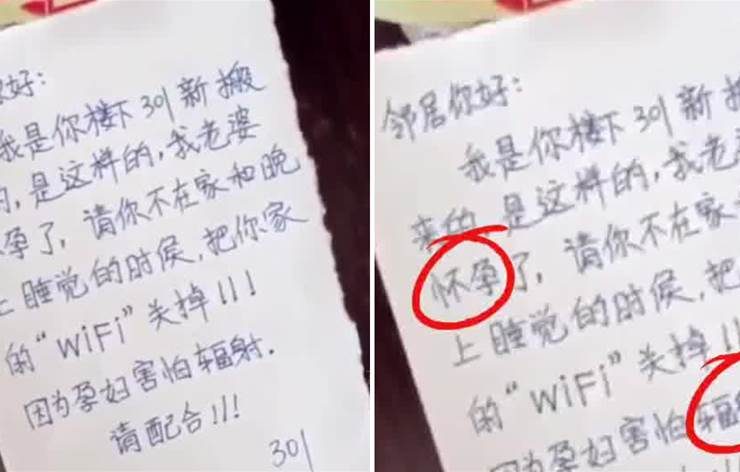 你好：
我是你楼下301新搬
的，是这样的，我老婆
孕了，请你不在家和晚
上睡觉的时候，把你家
的“WiFi”关掉!!!
因为孕妇害怕辐射.
请配合!!!
301
邻居你好：
我是你楼下301新搬
来的，是这样的，我老婆
怀孕了，请你不在家和
上睡觉的时候，把
的“WiFi”关掉!!
因为孕妇害怕辐射